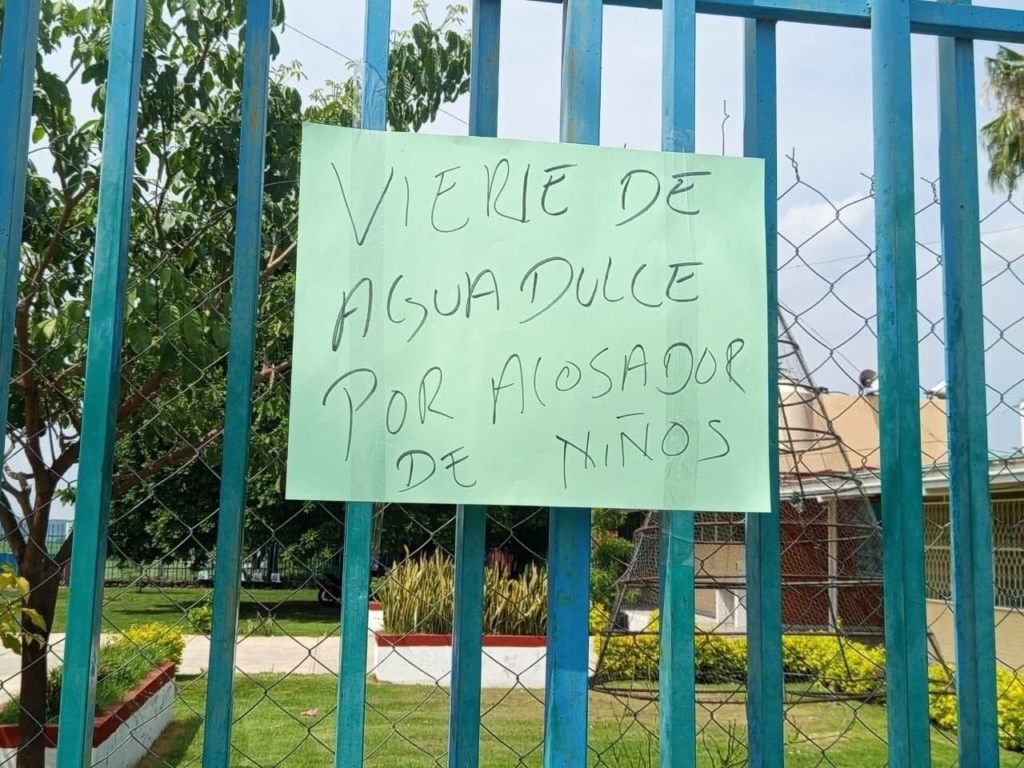 VIERIE DE
AGUA DULCE
POR ACOSADOR
DE NIÑOS